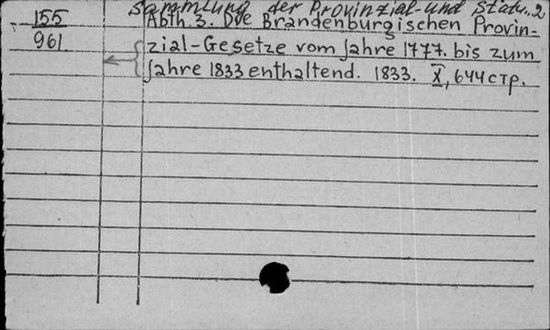 Sammlung der Provinzial-und Statu. 2
155
961
Abth. 3. Die Brandenburgischen Provin-
zial-Gesetze vom Jahre 1777. bis zum
Jahre 1833 enthaltend. 1833. X, 644 стр.